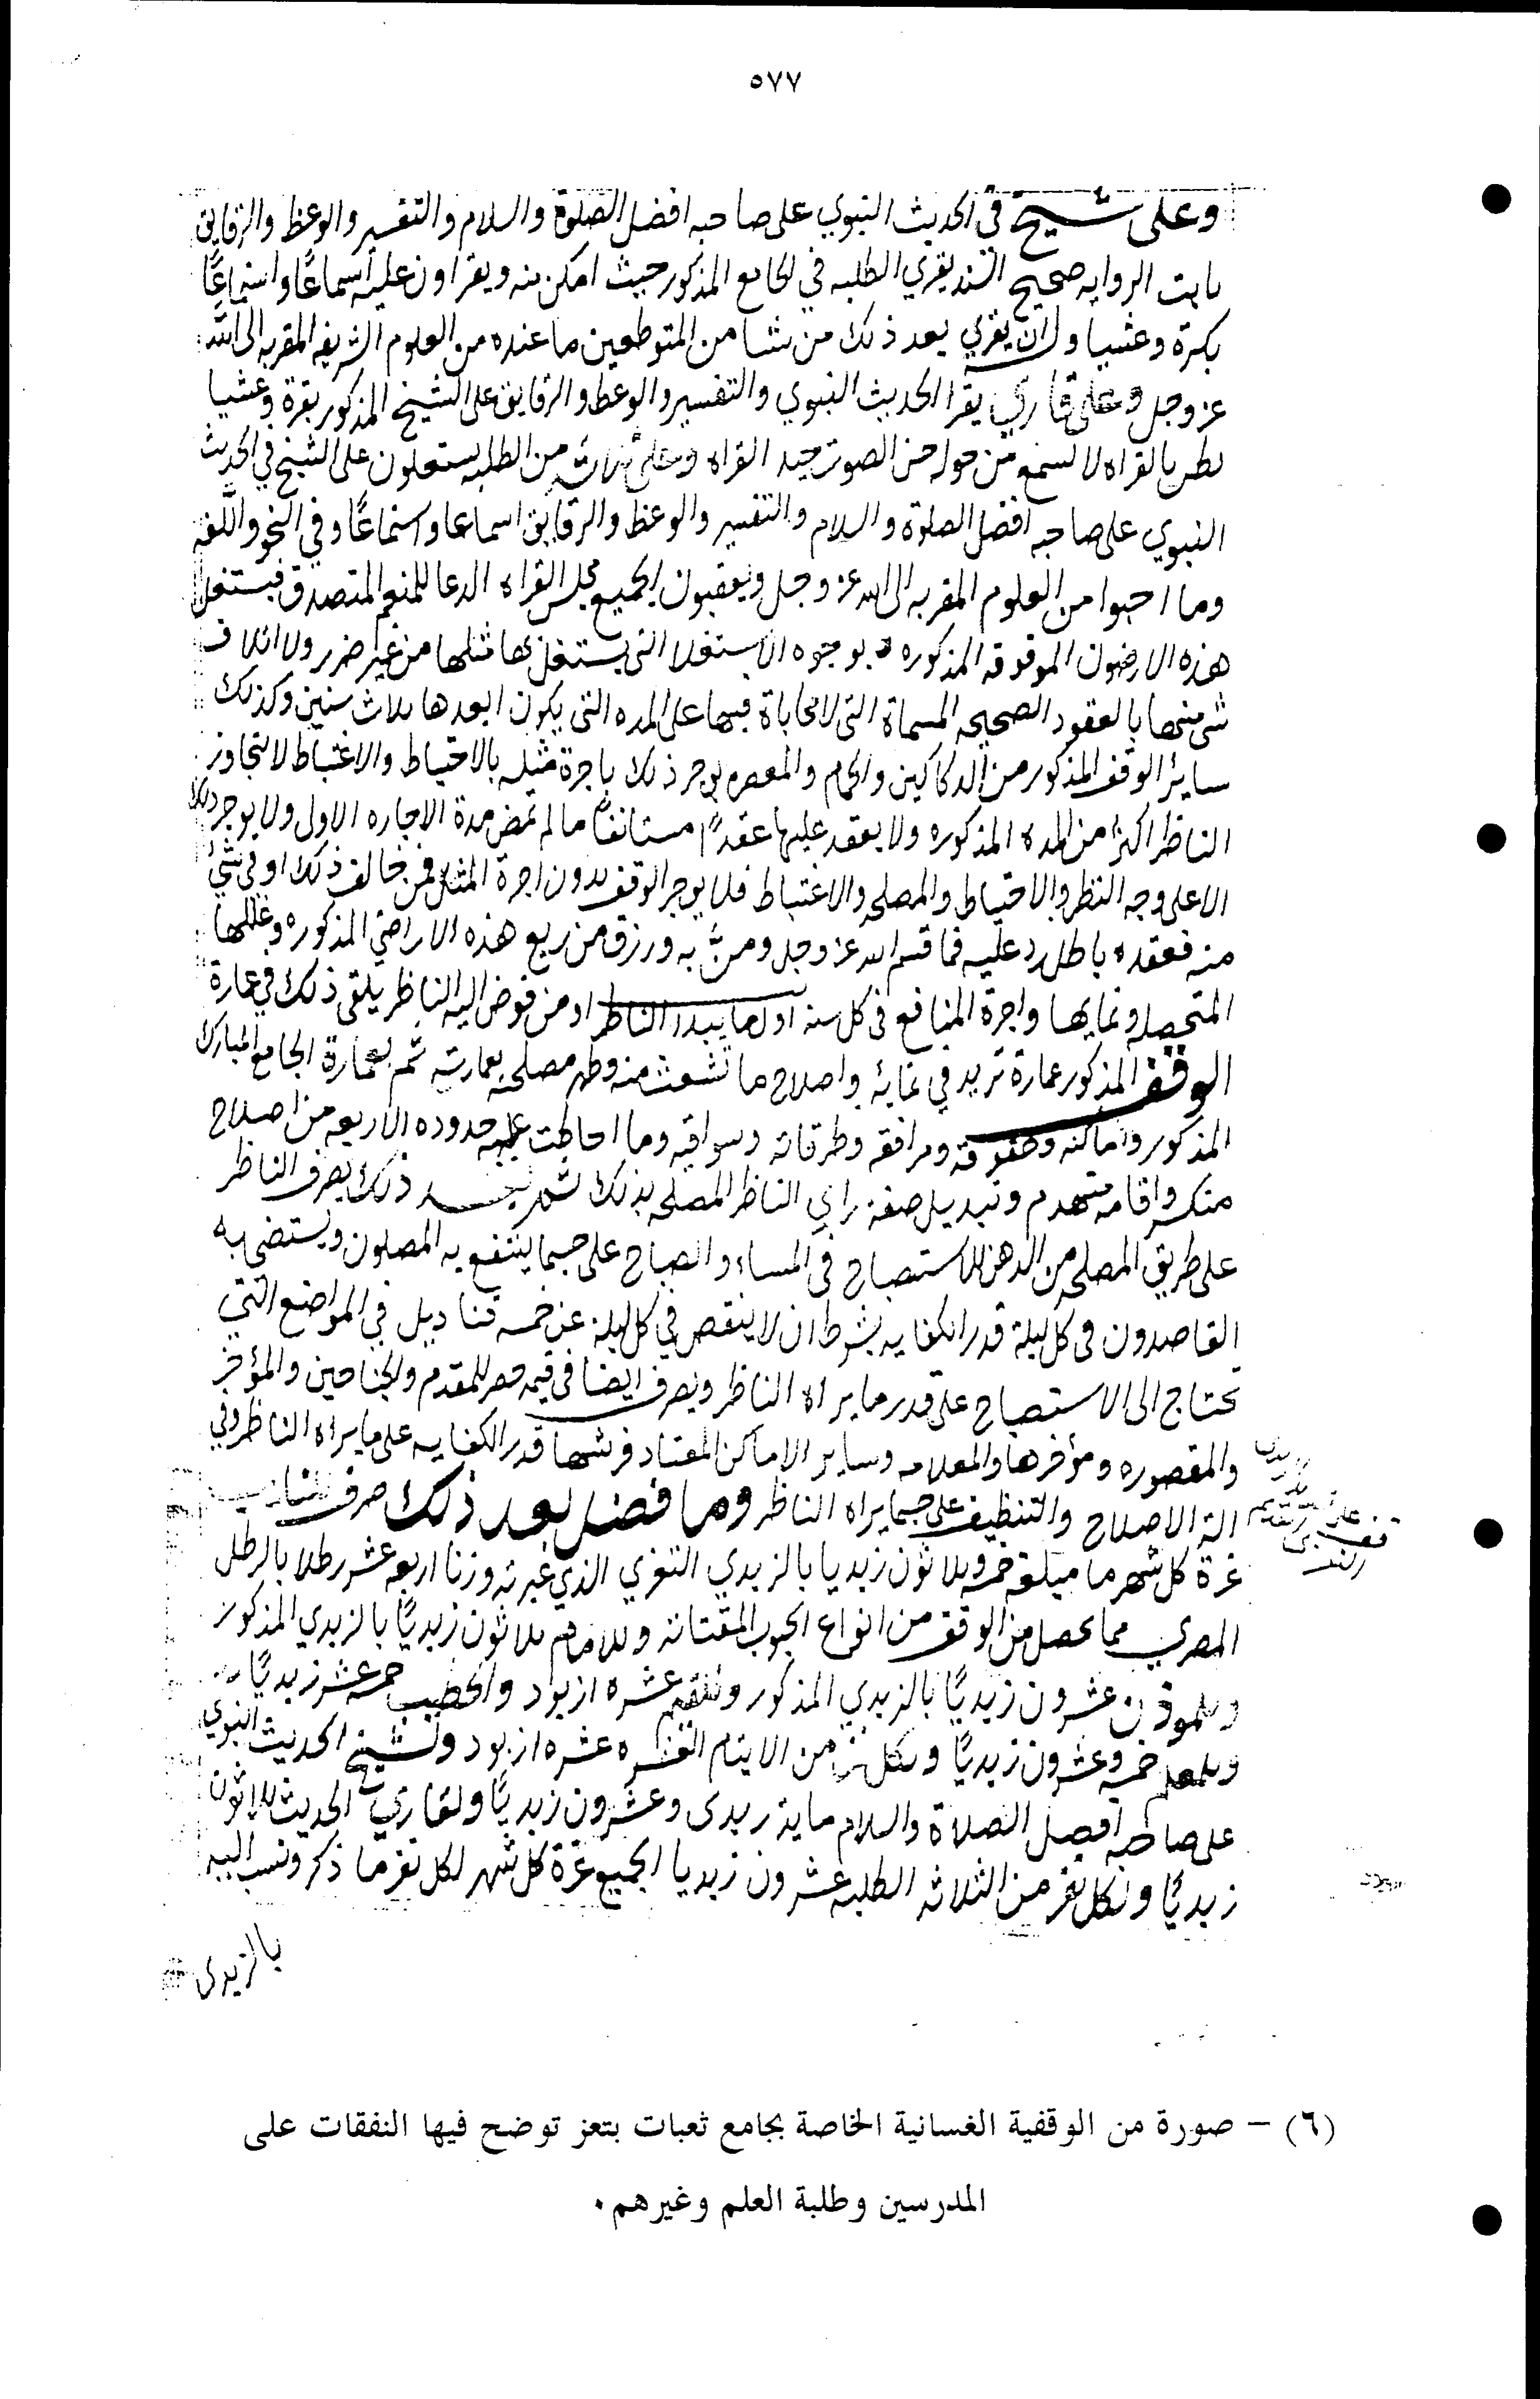 ٥٧٧
وعلى شيخ في الحديث النبوي على صاحبه افضل الصلوة والسلام والتفسير والوعظ والرقايق
ثابت الروايه صحيح السند يقري الطلبه في الجامع المذكور حيث امكن منه ويقراون عليه اسماعًا واستماعًا
بكرة وعشيا وان يقري بعد ذلك من شا من المتوطعين ما عنده من العلوم الشريفه المقربه الى الله
عز وجل وعلى قاري يقرا الحديث النبوي والتفسير والوعظ والرقايق على الشيخ المذكور بكرة وعشيا
بالقراه لا سمع من حوله حسن الصوت جيد القراه وعلى ثلاثه من الطلبه يشتغلون على الشيخ في الحديث
النبوي على صاحبه افضل الصلوة والسلام والتفسير والوعظ والرقايق اسماعا واستماعًا وفي النحو واللغه
وما احبوا من العلوم المقربه الى الله عز وجل ويعقبون الجميع مجلس القراه الدعا للمنعم المتصدق فيستغل
هذه الارضون الموقوفه المذكوره بوجوه الاستغلا التي يستغل بها مثلها من غير ضرر ولا اتلاف
شي منها بالعقود الصحيحه المسماة التي لا محاباة فيها على المده التي يكون ابعدها ثلاث سنين وكذلك
سائر الوقف المذكور من الدكاكين والحمام والمعصره يوجر ذلك باجرة مثله بالاحتياط والاغتباط لا يتجاوز
الناظر اكثر من المده المذكوره ولا يعقد عليها عقدًا مستانفًا ما لم تمض مدة الاجاره الاول ولا يوجر ذلك
الا على وجه النظر والاحتياط والمصلحه والاغتباط فلا يوجر الوقف بدون اجرة المثل فمن خالف ذلك او في شئ
منه فعقده باطل رد عليه فما قسم الله عز وجل ومنَّ به ورزق من ريع هذه الاراضي المذكوره وغللها
المتحصله ونمايها واجرة المنافع في كل سنه اول ما يبدا الناظر او من فوض اليه الناظر يلقى ذلك في عمارة
الوقف المذكور عمارة تزيد في نمائه واصلاح ما تشعث منه وظهر مصلحته بعمارته ثم بعمارة الجامع المبارك
المذكور واماكنه وحقوقه ومرافقه وطرقاته وسواقيه وما احاطت عليه حدوده الاربعه من اصلاح
منكسر واقامة متهدم وتبديل صفة راى الناظر المصلحه بذلك ثم بعد ذلك يصرف الناظر
على طريق المصلحه من الدهن للاستصباح في المساء والصباح على حسبما ينتفع به المصلون ويستضى به
القاصدون في كل ليلة قدر الكفايه بشرط ان لا ينقص في كل ليلة عن خمسه قناديل في المواضع التي
تحتاج الى الاستصباح على قدر ما يراه الناظر ويصرف ايضا في قيمه حصر للمقدم والجناحين والمؤخر
والمقصوره ومؤخرها والمعلامه وساير الاماكن المعتاد فرشها قدر الكفايه على ما يراه الناظر وفي
الة الاصلاح والتنظيف على حسبما يراه الناظر وما فضل بعد ذلك صرف
غرة كل شهر ما مبلغه خمسه وثلاثون زبديا بالزبدي التعزي الذي عبرته وزنا اربعه عشر رطلا بالرطل
المصري مما يحصل من الوقف من انواع الحبوب المقتاته وللامام ثلاثون زبديًا بالزبدي المذكور
وللموذن عشرون زبديًا بالزبدي المذكور وللقيم عشره ازبود وللخطيب خمسه عشر زبديًا
وللمعلم خمسه وعشرون زبديًا ولكل نفر من الايتام العشره عشره ازبود ولشيخ الحديث النبوي
على صاحبه افضل الصلاة والسلام ماية زبدى وعشرون زبديًا ولقاري الحديث ثلاثون
زبديًا ولكل نفر من الثلاثه الطلبه عشرون زبديا الجميع غرة كل شهر لكل نفر ما ذكر ونسب اليه
بالزبدى
(٦) – صورة من الوقفية الغسانية الخاصة بجامع ثعبات بتعز توضح فيها النفقات على
المدرسين وطلبة العلم وغيرهم.